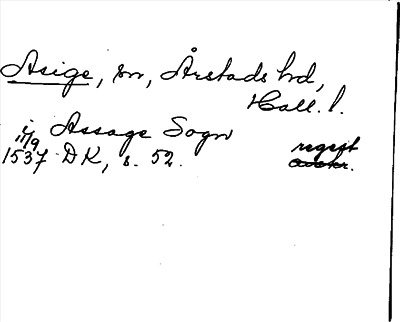 Asige, sn, Årstads hd,
Hall. l.
i Assage Sogn
17/9 1537 DK, s. 52. regest
avskr.